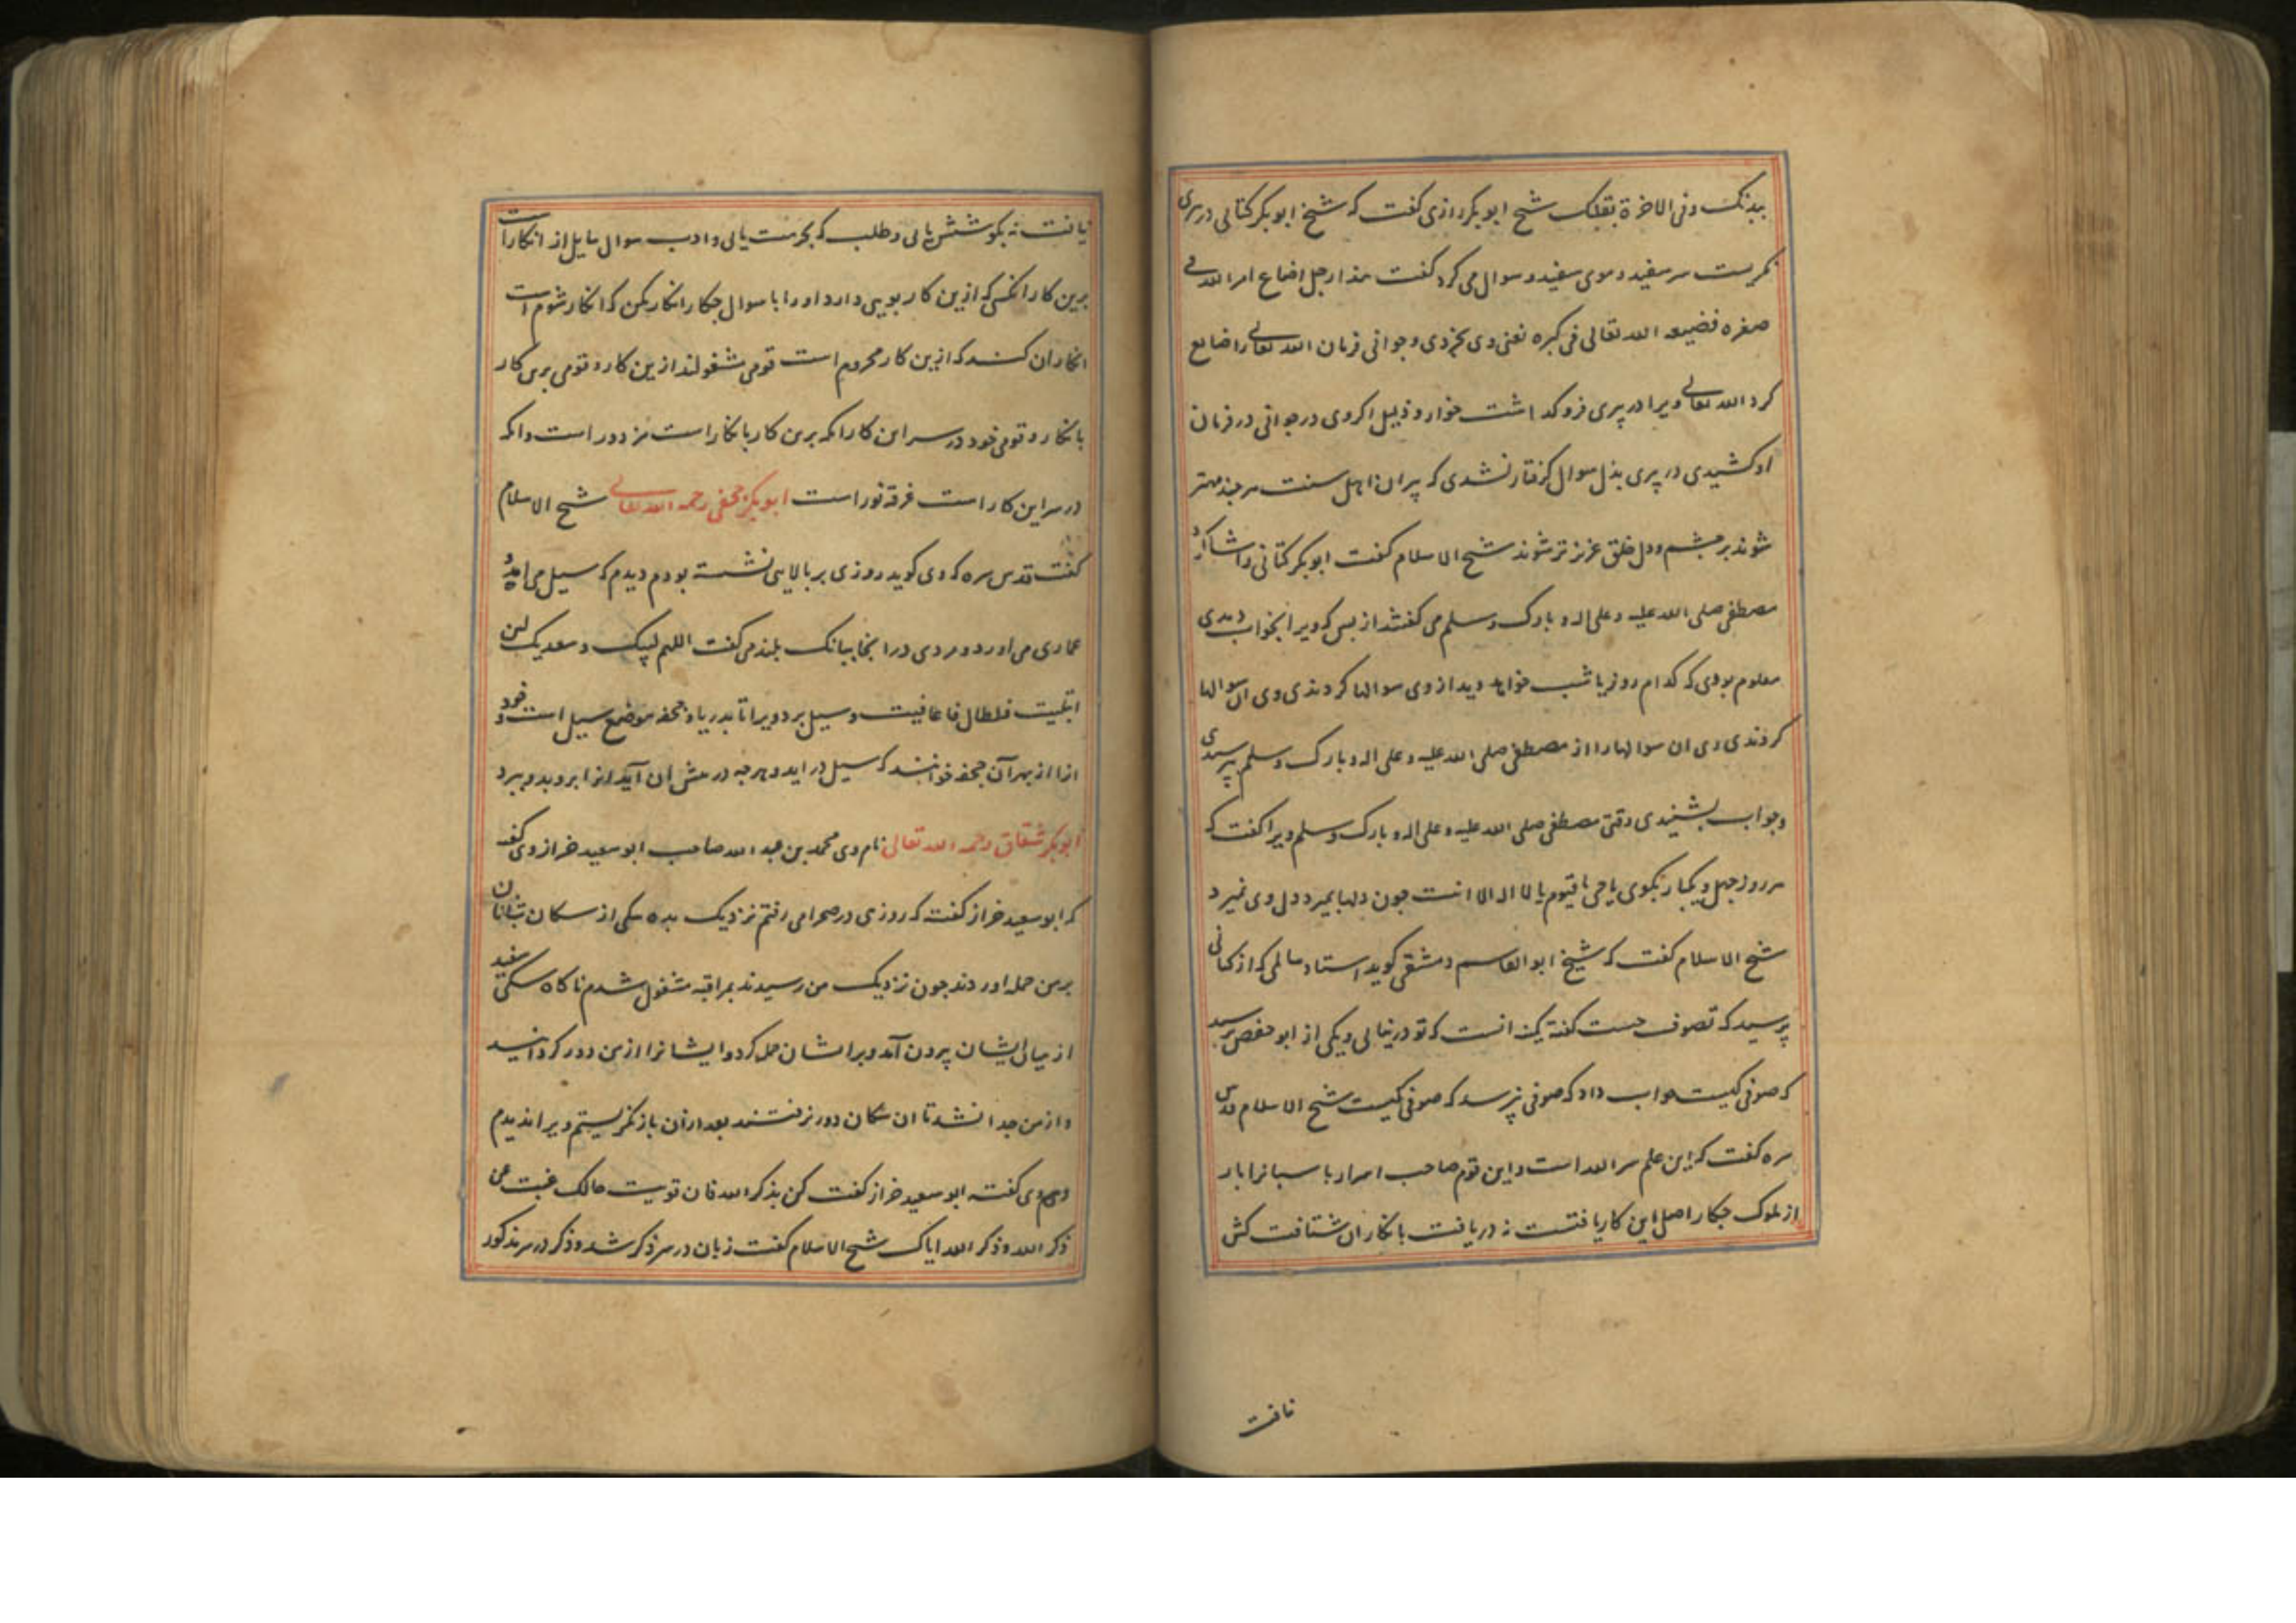 ببدنک وفی الاخرة بقلبک شیخ ابوبکر رازی کفت که شیخ ابوبکر کتانی در پیری
نکریست سر سفید و موی سفید و سوال می کرد کفت هذا رجل اضاع امر الله فی
صغره فضیعه الله تعالی فی کبره یعنی وی بخردی و جوانی فرمان الله تعالی را ضایع
کرد الله تعالی ویرا در پیری فروکذاشت خوار و ذلیل اکر وی در جوانی در فرمان
او کشیدی در پیری بذل سوال کرفتار نشدی که پیران اهل سنت هر چند مهتر
شوند بر چشم و دل خلق عزیزتر شوند شیخ الاسلام کفت ابوبکر کتانی را شاکرد
مصطفی صلی الله علیه و علی اله و بارک وسلم می کفتند از بس که ویرا بخواب دیدی
معلوم بودی که کدام روز یا شب خواهد دید از وی سوالها کردندی وی ان سوالها
کردندی وی ان سوالها را از مصطفی صلی الله علیه و علی اله و بارک وسلم پرسیدی
و جواب بشنیدی وقتی مصطفی صلی الله علیه و علی اله و بارک وسلم ویرا کفت که
هر روز چهل ویکبار بکوی یا حی یا قیوم یا لا اله الا انت چون دلها بمیرد دل وی نمیرد
شیخ الاسلام کفت که شیخ ابوالقاسم دمشقی کوید استاد سالمی که از کتانی
پرسید که تصوف چیست کفته کمینه انست که تو در نیابی ویکی از ابو حفص پرسید
که صوفی کیست جواب داد که صوفی نپرسد که صوفی کیست شیخ الاسلام قدس
سره کفت که این علم سر الله است و این قوم صاحب اسرار پاسبانرا با راز
ملوک چکار اصل این کار یافتست نه دریافت بانکار ان شتافت کش
یافت
یافت نه بکوشش یابی و طلب که بحرمت یابی و ادب سوال سایل از انکار است
برین کار انکس که ازین کار بویی دارد او را با سوال چکار انکار مکن که انکار شوم است
انکار ان کند که ازین کار محروم است قومی مشغولند ازین کار و قومی برین کار
بانکار و قومی خود در سر این کار انکه برین کار بانکار است مزدور است و انکه
در سر این کار است غرقه نور است ابوبکر جحفی رحمه الله تعالی شیخ الاسلام
کفت قدس سره که وی کوید روزی بر بالایی نشسته بودم دیدم که سیل می امد و
عماری می اورد و مردی در انجا ببانک بلند می کفت اللهم لبیک و سعدیک لئن
ابتلیت فلطال ما عافیت و سیل برد ویرا تا بدریا و جحفه موضع سیل است و خود
انرا از بهر آن جحفه خوانند که سیل در اید و هرچه در پیش ان آید انرا بروبد و ببرد
ابوبکر شقاق رحمه الله تعالی نام وی محمد بن عبد الله صاحب ابو سعید خراز وی کفته
که ابو سعید خراز کفت که روزی در صحرا می رفتم نزدیک بده سکی از سکان شبانان
بر من حمله اوردند چون نزدیک من رسیدند بمراقبه مشغول شدم ناکاه سکی سفید
از میان ایشان بیرون آمد و بر ایشان حمله کرد و ایشانرا از من دور کردانید
و از من جدا نشد تا ان سکان دور نرفتند بعد از آن باز نکریستم ویرا ندیدم
و هم وی کفته ابو سعید خراز کفت کن بذکر الله فان قویت حالک غبت عن
ذکر الله و ذکر الله ایاک شیخ الاسلام کفت زبان در سر ذکر شد و ذکر در سر مذکور